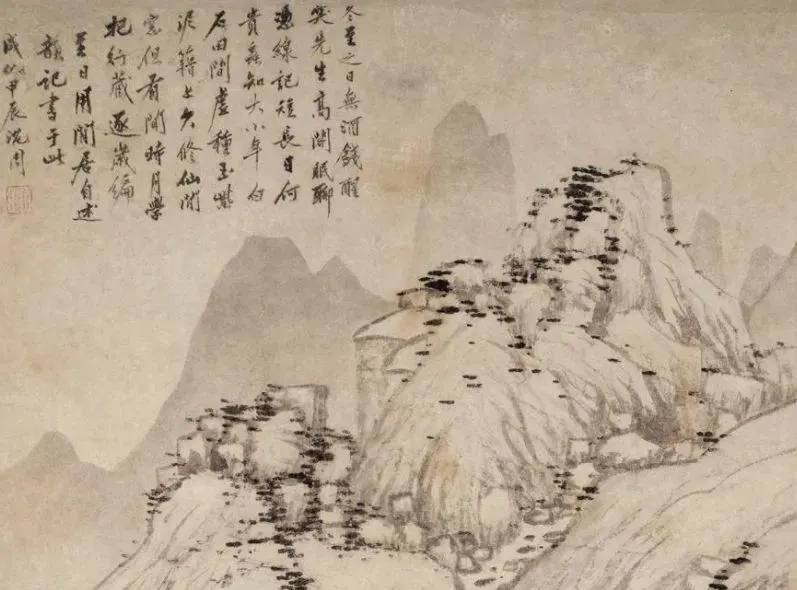 冬至之日無酒錢醒
先生高閑眠聊
憑線記短長日何
貴蟲知大小年白
石田閒虛種玉紫
泥籍上久修仙閒
窓但看閒時月學
把行藏逐歲編
至日用閒居自述
韻記書于此
成化甲辰沈周